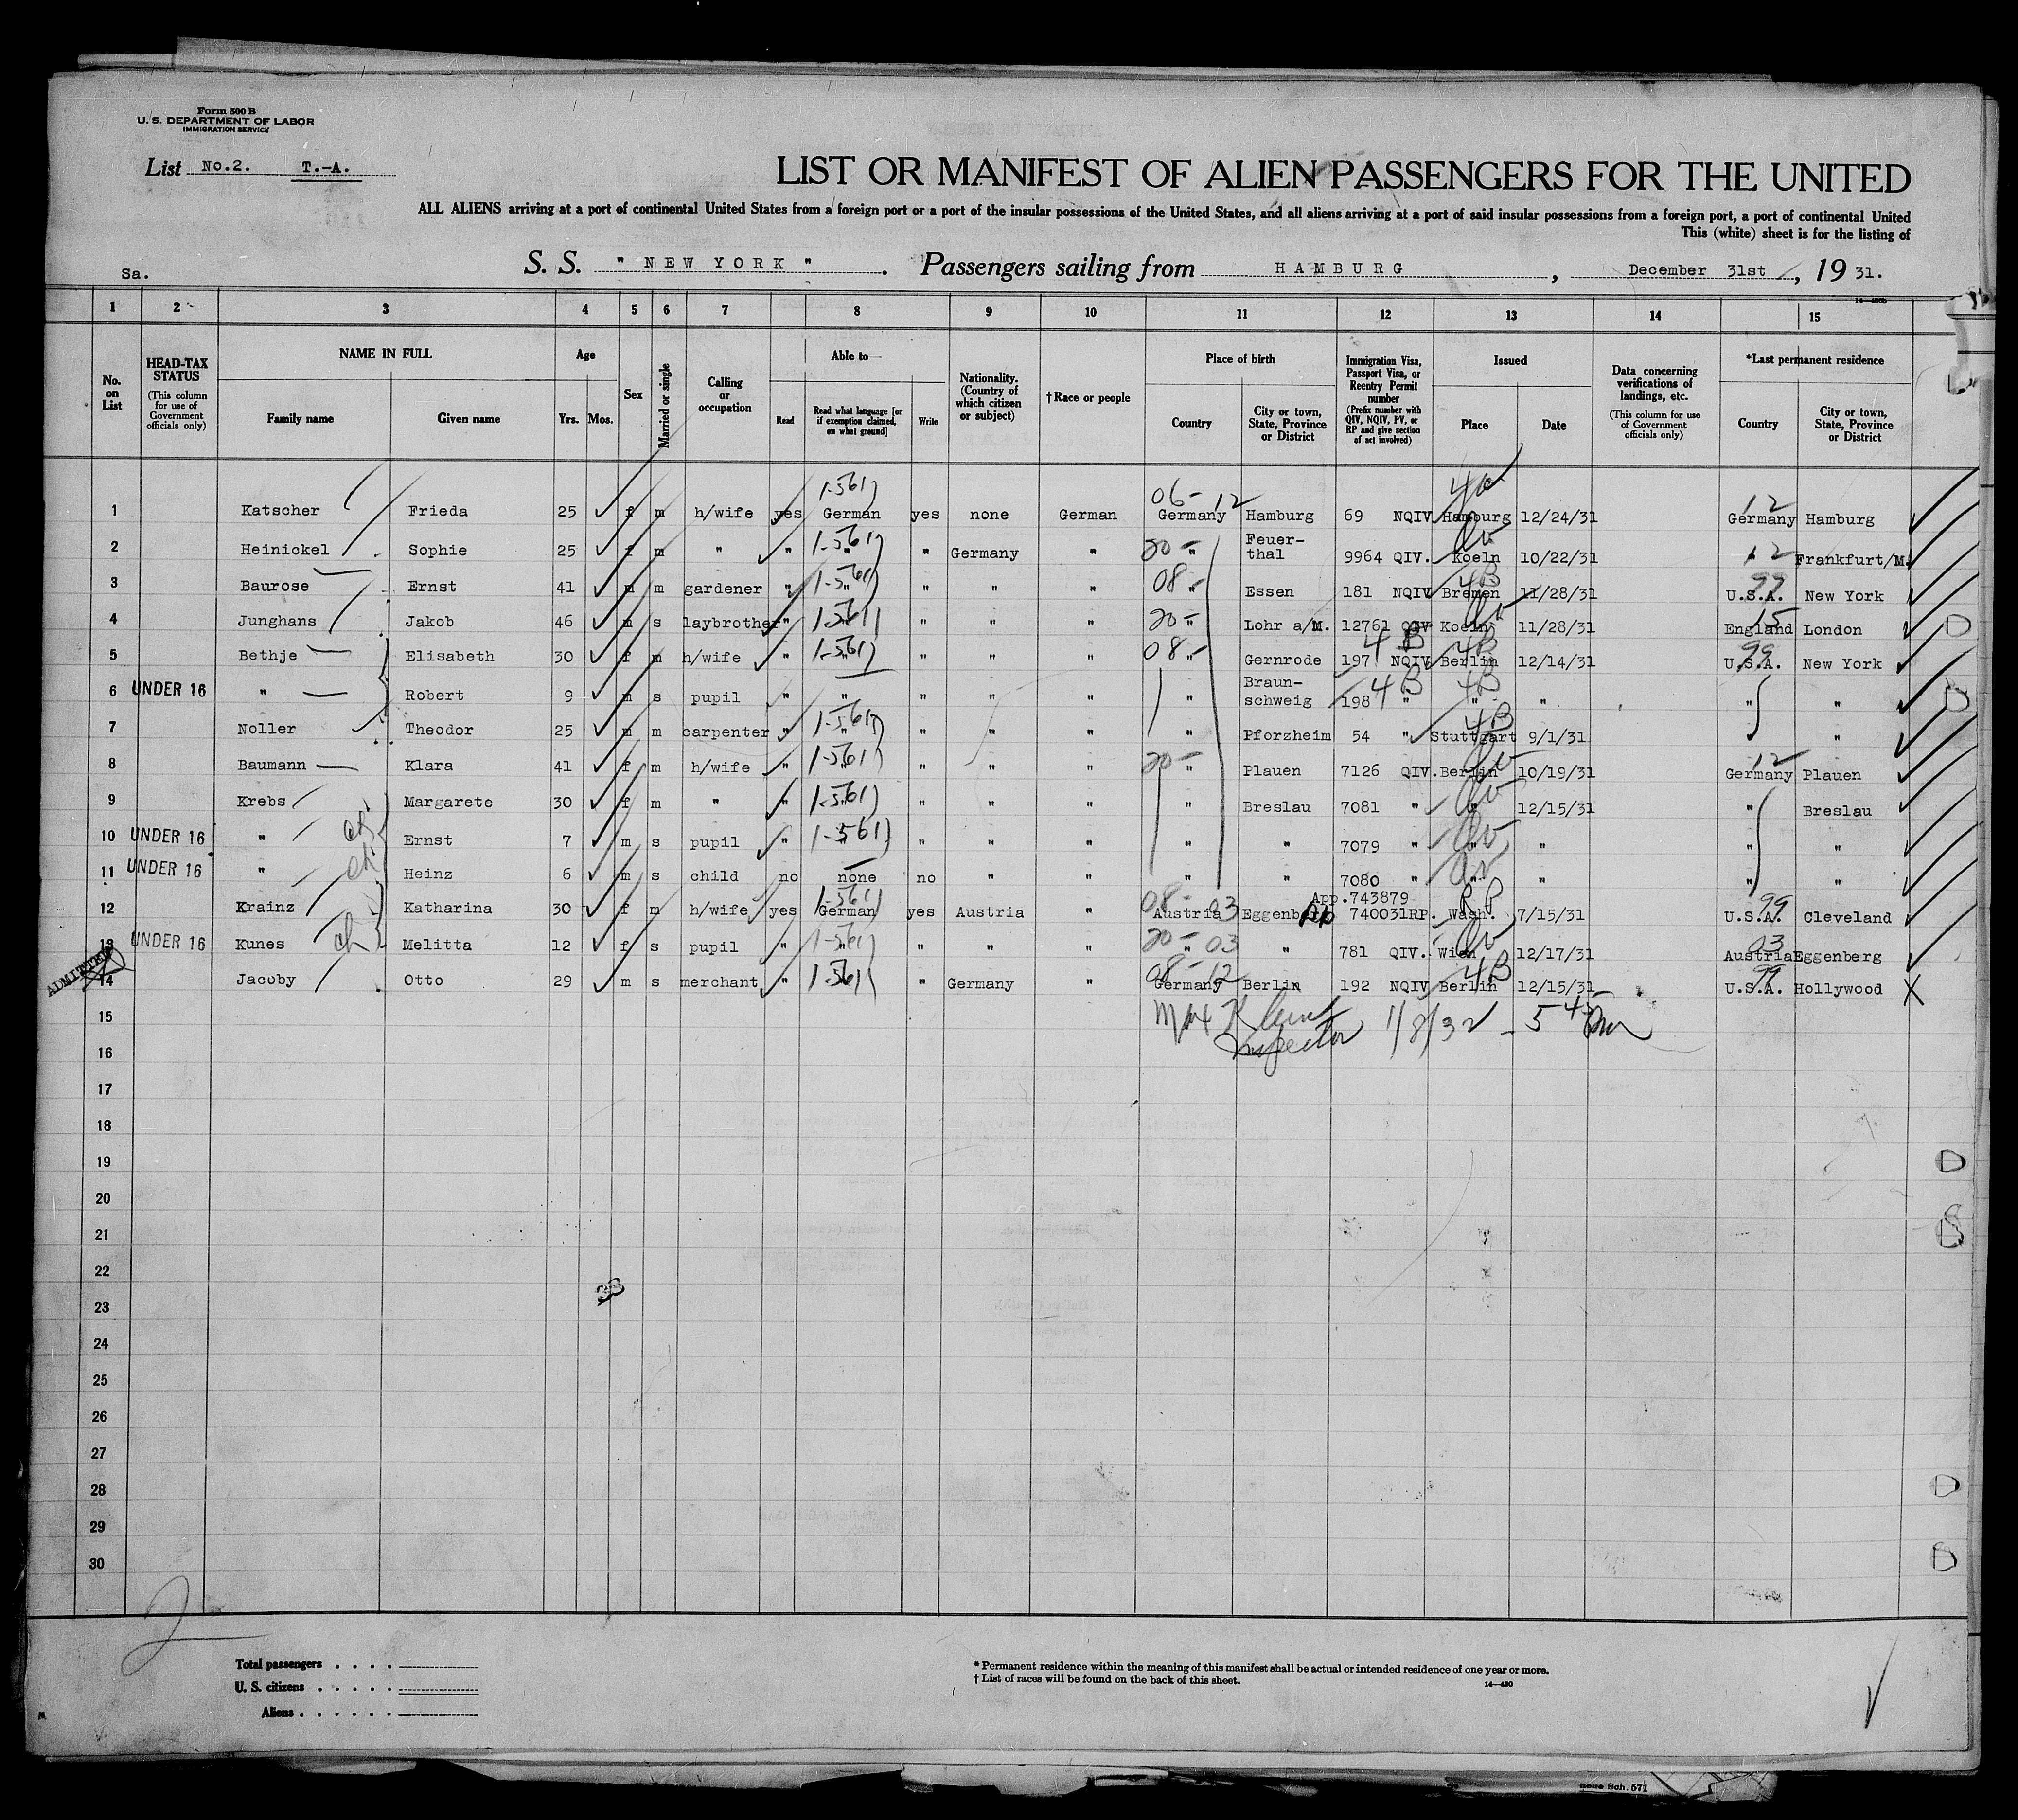 Form 500 B
U. S. DEPARTMENT OF LABOR
IMMIGRATION SERVICE
List No.2. T.-A.
LIST OR MANIFEST OF ALIEN PASSENGERS FOR THE UNITED
ALL ALIENS arriving at a port of continental United States from a foreign port or a port of the insular possessions of the United States, and all aliens arriving at a port of said insular possessions from a foreign port, a port of continental United
This (white) sheet is for the listing of
Sa.
S. S. " NEW YORK " . Passengers sailing from HAMBURG , December 31st , 19 31.
14—430b
1 2 3 4 5 6 7 8 9 10 11 12 13 14 15
No. on List
HEAD-TAX STATUS
(This column for use of Government officials only)
NAME IN FULL
Family name Given name
Age
Yrs. Mos.
Sex
Married or single
Calling or occupation
Able to—
Read
Read what language [or if exemption claimed, on what ground]
Write
Nationality. (Country of which citizen or subject)
† Race or people
Place of birth
Country
City or town, State, Province or District
Immigration Visa, Passport Visa, or Reentry Permit number
(Prefix number with QIV, NQIV, PV, or RP and give section of act involved)
Issued
Place Date
Data concerning verifications of landings, etc.
(This column for use of Government officials only)
*Last permanent residence
Country
City or town, State, Province or District
4a
1-561) 06-12 12
1 Katscher Frieda 25 f m h/wife yes German yes none German Germany Hamburg 69 NQIV Hamburg 12/24/31 Germany Hamburg
1-561) 20- 12
2 Heinickel Sophie 25 f m " " " " Germany " " Feuer-thal 9964 QIV. Koeln 10/22/31 " Frankfurt/M.
1-561) 08- 4B 99
3 Baurose Ernst 41 m m gardener " " " " " " Essen 181 NQIV Bremen 11/28/31 U.S.A. New York
1-561) 20- 15
4 Junghans Jakob 46 m s laybrother " " " " " " Lohr a/M. 12761 QIV Koeln 11/28/31 England London
1-561) 08- 4B 4B 99
5 Bethje Elisabeth 30 f m h/wife " " " " " " Gernrode 197 NQIV Berlin 12/14/31 U.S.A. New York
4B 4B
6 UNDER 16 " Robert 9 m s pupil " " " " " " Braun-schweig 198 " " " " "
1-561) 4B
7 Noller Theodor 25 m m carpenter " " " " " " Pforzheim 54 " Stuttgart 9/1/31 " "
1-561) 20- 12
8 Baumann Klara 41 f m h/wife " " " " " " Plauen 7126 QIV. Berlin 10/19/31 Germany Plauen
1-561)
9 Krebs Margarete 30 f m " " " " " " " Breslau 7081 " " 12/15/31 " Breslau
ch 1-561)
10 UNDER 16 " Ernst 7 m s pupil " " " " " " " 7079 " " " " "
ch
11 UNDER 16 " Heinz 6 m s child no none no " " " " 7080 " " " " "
1-561) 08-03 App.743879 RP 99
12 Krainz Katharina 30 f m h/wife yes German yes Austria " Austria Eggenberg 740031RP. Wash. 7/15/31 U.S.A. Cleveland
ch 1-561) 20-03 03
13 UNDER 16 Kunes Melitta 12 f s pupil " " " " " " " 781 QIV. Wien 12/17/31 Austria Eggenberg
ADMITTED
1-561) 08-12 4B 99
14 Jacoby Otto 29 m s merchant " " " Germany " Germany Berlin 192 NQIV Berlin 12/15/31 U.S.A. Hollywood X
15 Max
16 Inspector 1/8/32 - 5 45 pm
17
18
19
20
21
22
23
24
25
26
27
28
29
30
2
Total passengers . . . .
U. S. citizens . . . . .
Aliens . . . . . .
* Permanent residence within the meaning of this manifest shall be actual or intended residence of one year or more.
† List of races will be found on the back of this sheet.
14—430
Sch. 571